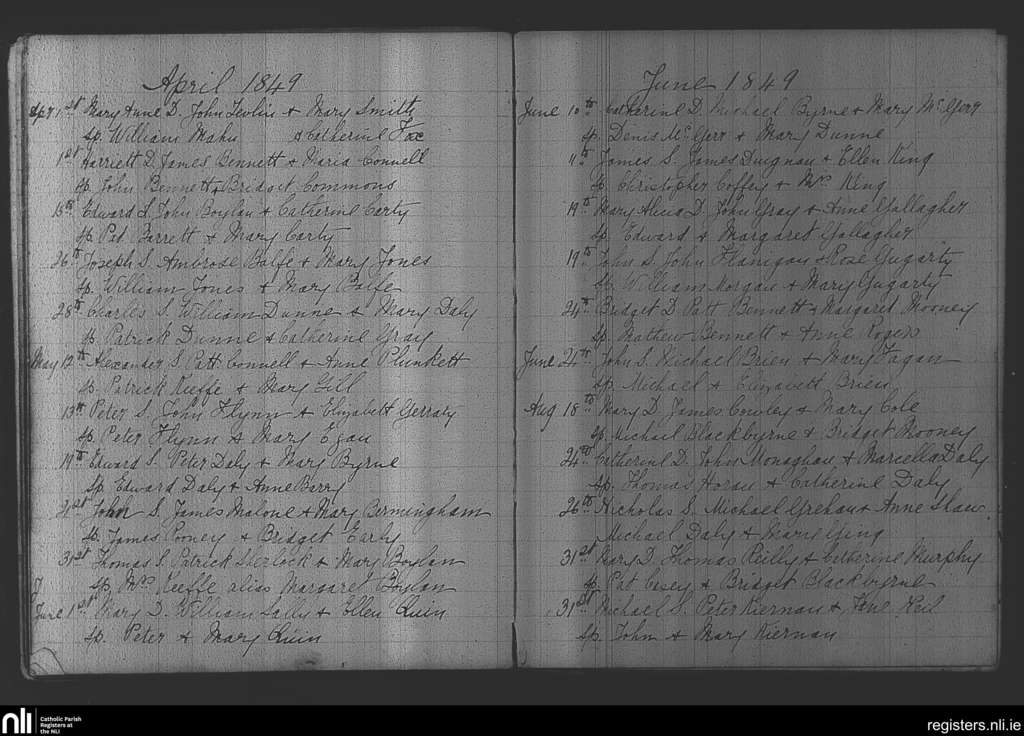 April 1849
Apl 1st Mary Anne D. John Tevlin + Mary Smith
Sp. William Mahu + Catherine Fox
1st Harriett D. James Bennett + Maria Connell
Sp. John Bennett + Bridget Commons
15th Edward S. John Boylan + Catherine Carty
Sp. Pat Barrett + Mary Carty
26th Joseph S. Ambrose Balfe + Mary Jones
Sp. William Jones + Mary Balfe
28th Charles S. William Dunne + Mary Daly
Sp. Patrick Dunne + Catherine Gray
May 12th Alexander S. Patt Connell + Anne Plunkett
Sp. Patrick Keeffe + Mary Gill
13th Peter S. John Flynn + Elizabeth Gerraty
Sp. Peter Flynn + Mary Egan
19th Edward S. Peter Daly + Mary Byrne
Sp. Edward Daly + Anne Barry
21st John S. James Malone + Mary Bermingham
Sp. James Pooney + Bridget Early
31st Thomas S. Patrick Sherlock + Mary Boylan
J Sp. Mrs Keeffe alias Margaret Boylan
June 1st Mary D. William Lally + Ellen Quin
Sp. Peter + Mary Quin
June 1849
June 10th Catherine D. Michael Byrne + Mary McGerr
Sp. Denis McGerr + Mary Dunne
11th James S. James Duignan + Ellen King
Sp. Christopher Coffey + Mrs King
19th Mary Alicia D. John Gray + Anne Gallagher
Sp. Edward + Margaret Gallagher
19th John S. John Flanigan + Rose Gugarty
Sp. William Morgan + Mary Gugarty
24th Bridget D. Patt Bennett + Margaret Mooney
Sp. Mathew Bennett + Anne Rogers
June 24th John S. Michael Brien + Mary Fagan
Sp. Michael + Elizabeth Brien
Aug 18th Mary D. James Cowley + Mary Cole
Sp. Michael Blackbyrne + Bridget Mooney
24th Catherine D. John Monaghan + Marcella Daly
Sp. Thomas Horan + Catherine Daly
26th Nicholas S. Michael Grehan + Anne Shaw
Michael Daly + Marie Ging
31st Mary D. Thomas Reilly + Catherine Murphy
Sp. Pat Casey + Bridget Blackbyrne
31st Michael S. Peter Kiernan + Jane Keil
Sp. John + Mary Kiernan
nli Catholic Parish
Registers at
the NLI
registers.nli.ie